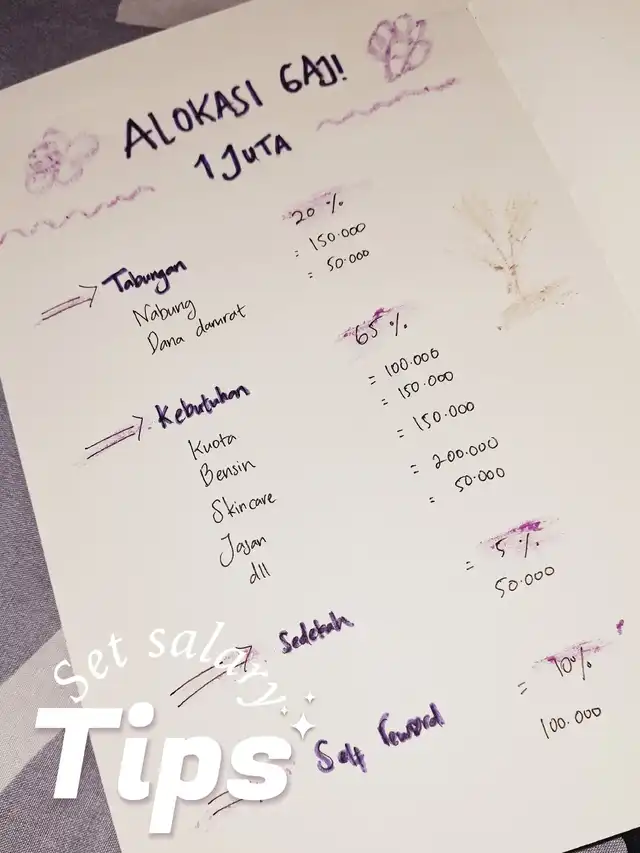 ALOKASI GAJI
1 JUTA
Tabungan 20 %
Nabung = 150.000
Dana darurat = 50.000
Kebutuhan 65 %
Kuota = 100.000
Bensin = 150.000
Skincare = 150.000
Jajan = 200.000
dll = 50.000
Sedekah 5 %
= 50.000
Self reword 10%
= 100.000
Set salary
Tips